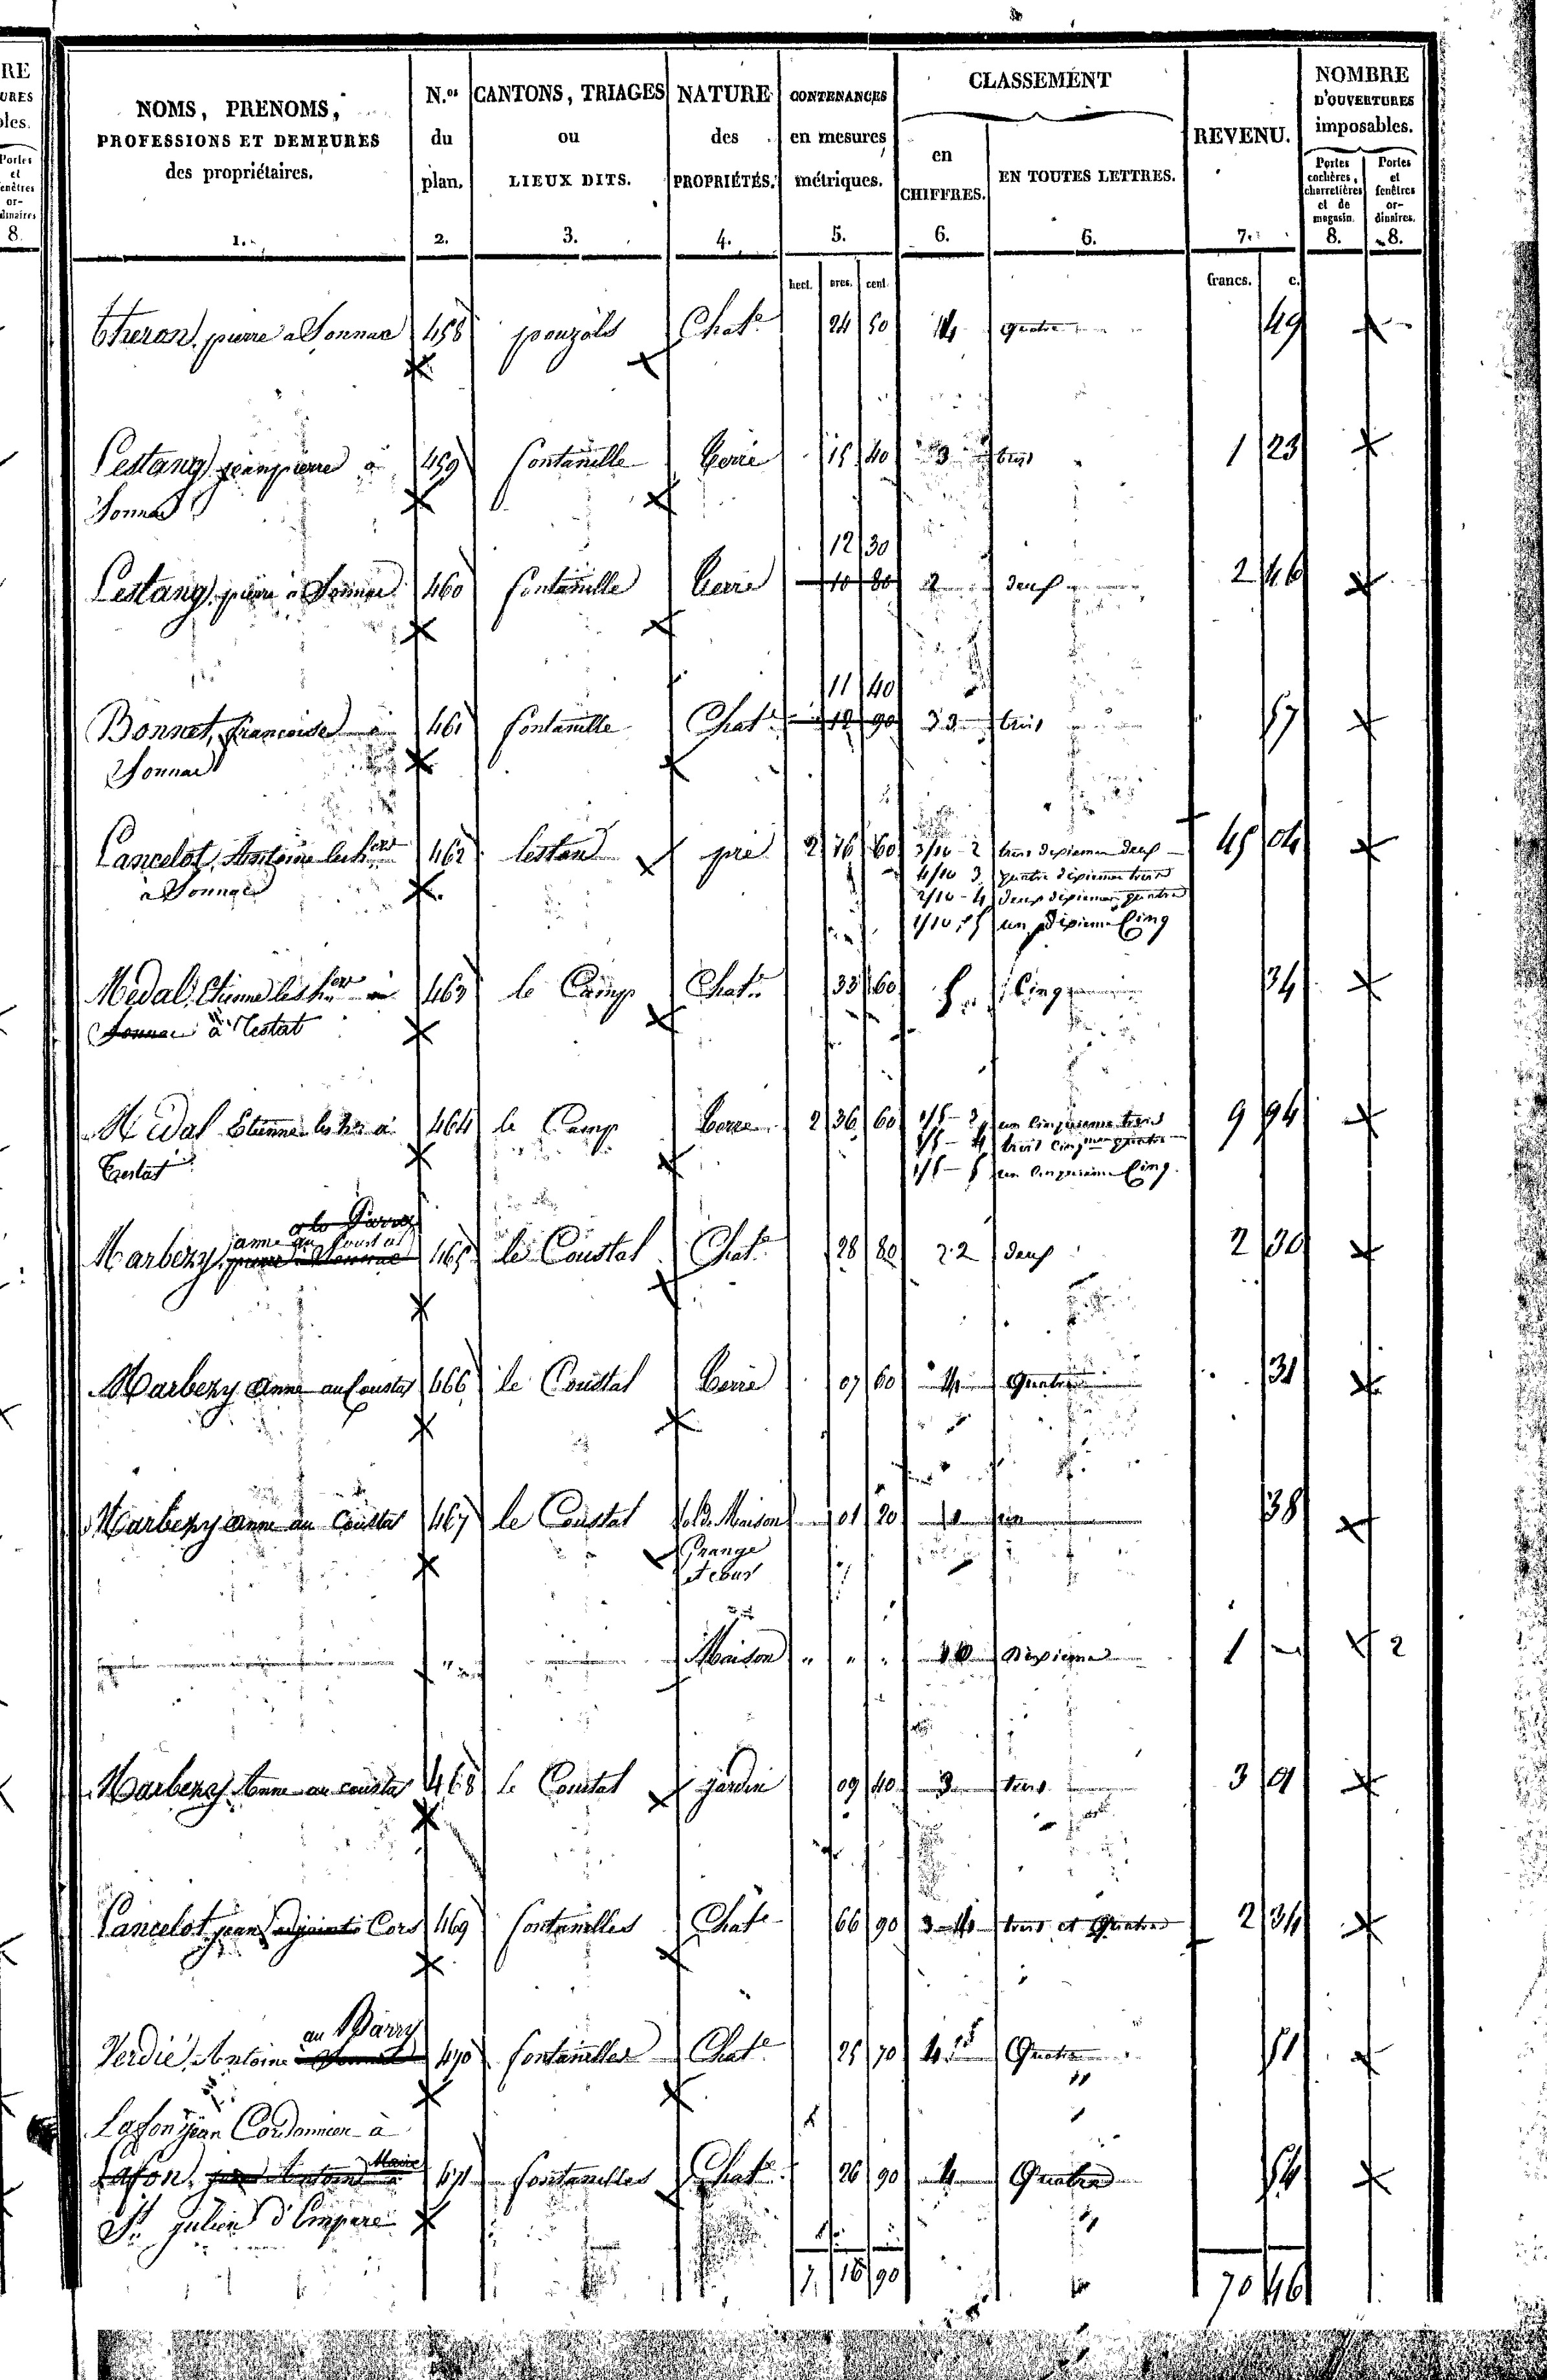 RE
URES
bles.
Portes
et
fenêtres
or-
dinaires
8.
NOMS, PRENOMS,
PROFESSIONS ET DEMEURES
des propriétaires.
1.
N.os
du
plan.
2.
CANTONS, TRIAGES
ou
LIEUX DITS.
3.
NATURE
des
PROPRIÉTÉS.
4.
CONTENANCES
en mesures
métriques.
5.
CLASSEMENT
en
CHIFFRES.
6.
EN TOUTES LETTRES.
6.
REVENU.
7.
NOMBRE
D'OUVERTURES
imposables.
Portes
cochères,
charretières
et de
magasin.
8.
Portes
et
fenêtres
or-
dinaires.
8.
hect. ares. cent. francs. c.
Theron, pierre a Sonnac 458 pouzols Chat.e 24 50 4 quatre 49
Lestang, jeanpierre à 459 fontanille Terre 15 40 3 trois 1 23
Sonnac
12 30
Lestang, pierre à Sonnac 460 fontanille Terre 10 80 2 deux 2 46
11 40
Bonnet, francoise à 461 fontanille Chat.e 12 90 3 trois 57
Sonnac
Lancelot, Antoine les h.ers 462 lestan pré 2 76 60 3/10 - 2 trois dixieme deux 45 04
à Sonnac 4/10 3 quatre dixieme trois
2/10 - 4 deux dixieme quatre
1/10 - 5 un dixieme Cinq
Medal, Etienne les h.ers à 463 le Camp Chat.e 33 60 5 Cinq 34
Sonnac à Testat
Medal Etienne les h.rs à 464 le Camp Terre 2 36 60 1/5 - 3 un Cinquieme trois 9 94
Testat 3/5 - 4 trois Cinq.mes quatre
1/5 - 5 un Cinquieme Cinq
anne au Coustal
Marbezy, pierre à Sonnac 465 le Coustal Chat.e 28 80 2 deux 2 30
Marbezy anne au Coustal 466 le Coustal Terre 07 60 4 Quatre 31
Marbezy anne au Coustal 467 le Coustal sol de Maison 01 20 1 un 38
Grange
et cour
" Maison " " " 10 Dixieme 1 2
Marbezy Anne au coustal 468 le Coustal jardin 09 40 3 trois 3 01
Lancelot, jean adjoint Cors 469 fontanilles Chat.e 66 90 3-4 trois et Quatre 2 34
au Barry
Verdié, Antoine à Sonnac 470 fontanilles Chat.e 25 70 4 Quatre 51
Lafon jean Cordonnier à
Lafon, jean Antoine Maire à 471 fontanilles Chat.e 26 90 4 Quatre 54
St. julien d'Empare
7 16 90 70 46